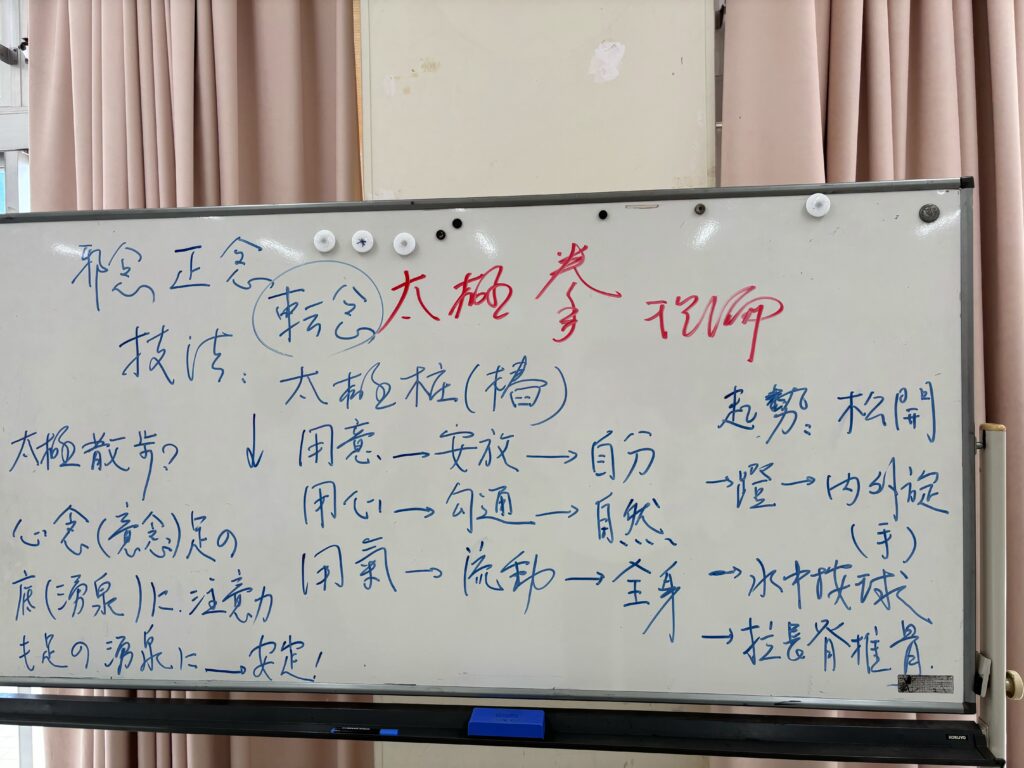 太極拳 理論
邪念 正念 転念
技法:
太極桩(樁)
用意→安放→自分
用心→勾通→自然
用氣→流動→全身
太極散歩?
心念(意念)足の
底(湧泉)に注意力
も足の湧泉に→安定!
起勢: 松開
→蹬→内外旋
(手)
→水中挟球
→拉長脊椎骨
KOKUYO